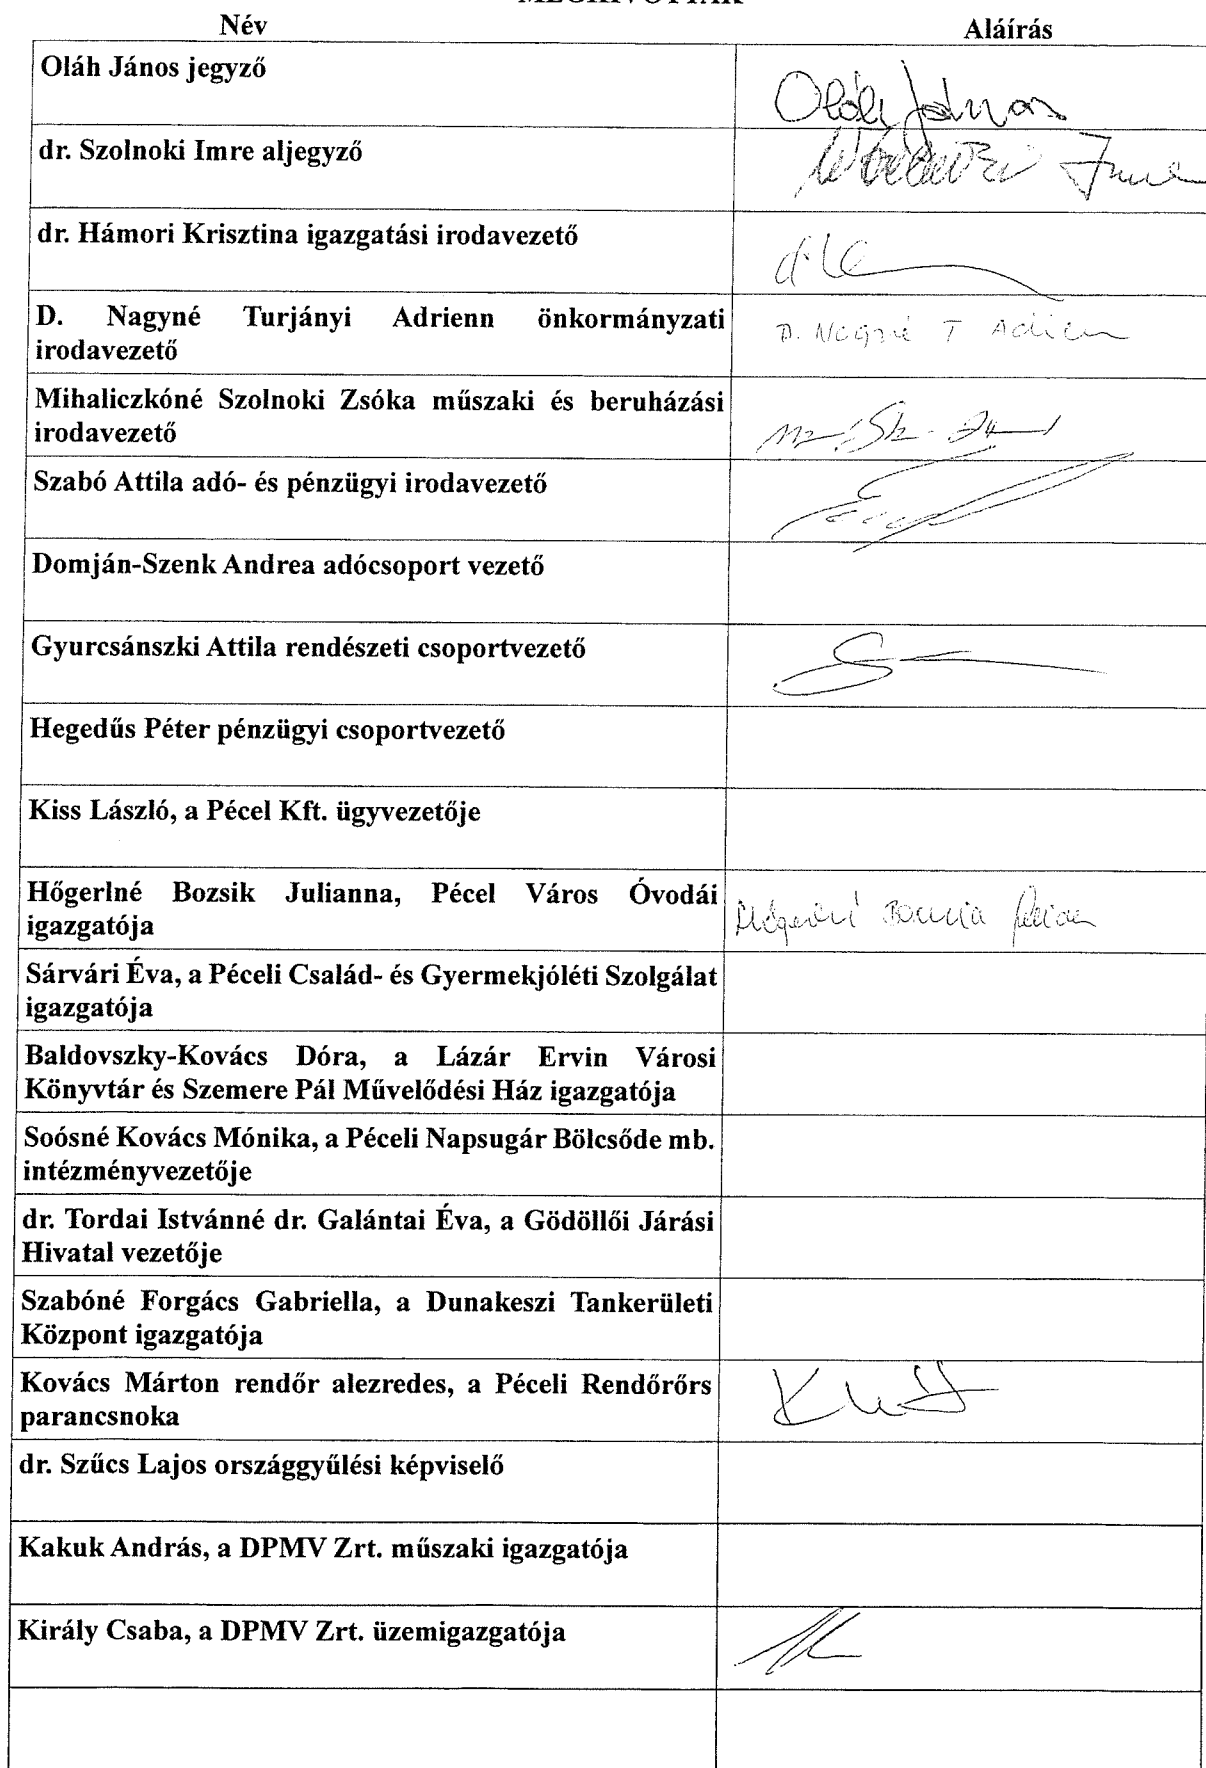 MEGHÍVOTTAK
Név Aláírás
Oláh János jegyző
Oláh János
dr. Szolnoki Imre aljegyző
Imre
dr. Hámori Krisztina igazgatási irodavezető
D. Nagyné Turjányi Adrienn önkormányzati
irodavezető
D. Nagyné T Adrienn
Mihaliczkóné Szolnoki Zsóka műszaki és beruházási
irodavezető
Szabó Attila adó- és pénzügyi irodavezető
Domján-Szenk Andrea adócsoport vezető
Gyurcsánszki Attila rendészeti csoportvezető
Hegedűs Péter pénzügyi csoportvezető
Kiss László, a Pécel Kft. ügyvezetője
Hőgerlné Bozsik Julianna, Pécel Város Óvodái
igazgatója
Sárvári Éva, a Péceli Család- és Gyermekjóléti Szolgálat
igazgatója
Baldovszky-Kovács Dóra, a Lázár Ervin Városi
Könyvtár és Szemere Pál Művelődési Ház igazgatója
Soósné Kovács Mónika, a Péceli Napsugár Bölcsőde mb.
intézményvezetője
dr. Tordai Istvánné dr. Galántai Éva, a Gödöllői Járási
Hivatal vezetője
Szabóné Forgács Gabriella, a Dunakeszi Tankerületi
Központ igazgatója
Kovács Márton rendőr alezredes, a Péceli Rendőrőrs
parancsnoka
dr. Szűcs Lajos országgyűlési képviselő
Kakuk András, a DPMV Zrt. műszaki igazgatója
Király Csaba, a DPMV Zrt. üzemigazgatója